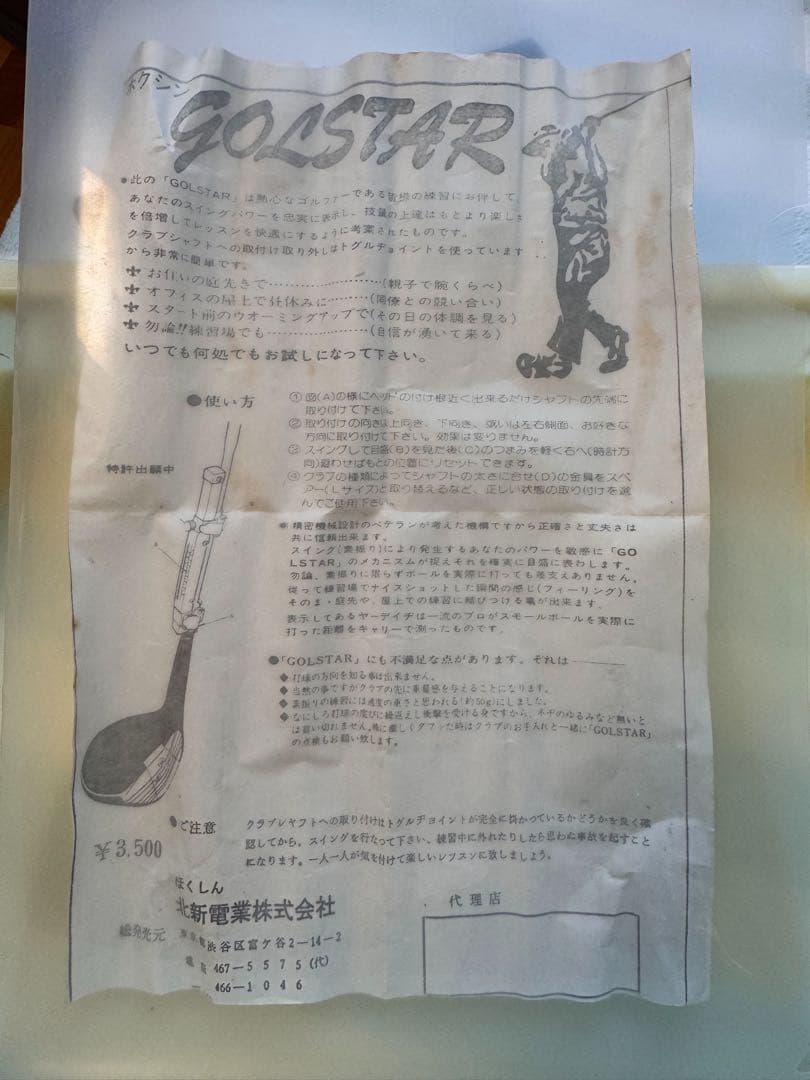 ホクシン
GOLSTAR
●此の「GOLSTAR」は熱心なゴルファーである皆様の練習にお伴して、
あなたのスイングパワーを忠実に表示し、技量の上達はもとより楽しさ
を倍増してレッスンを快適にするように考案されたものです。
クラブシャフトへの取付け取り外しはトグルヂョイントを使っています
から非常に簡単です。
お住いの庭先きで…………(親子で腕くらべ)
オフィスの屋上で昼休みに……(同僚との競い合い)
スタート前のウオーミングアップで(その日の体調を見る)
勿論!!練習場でも…………(自信が湧いて来る)
いつでも何処でもお試しになって下さい。
●使い方
①図(A)の様にヘッドの付け根近く出来るだけシャフトの先端に
取り付けて下さい。
②取り付けの向きは上向き、下向き、或いは左右側面、お好きな
方向に取り付けて下さい。効果は変りません。
③スイングして目盛(B)を見た後(C)のつまみを軽く右へ(時計方
向)廻わせばもとの位置にリセットできます。
④クラブの種類によってシャフトの太さに合せ(D)の金具をスペ
アー(Lサイズ)と取り替えるなど、正しい状態の取り付けを選
んでご使用下さい。
特許出願中
●精密機械設計のベテランが考えた機構ですから正確さと丈夫さは
共に信頼出来ます。
スイング(素振り)により発生するあなたのパワーを敏感に「GO
LSTAR」のメカニズムが捉えそれを確実に目盛に表わします。
勿論、素振りに限らずボールを実際に打っても差支えありません。
従って練習場でナイスショットした瞬間の感じ(フィーリング)を
そのまま・庭先や、屋上での練習に結びつける事が出来ます。
表示してあるヤーデイヂは一流のプロがスモールボールを実際に
打った距離をキャリーで測ったものです。
●「GOLSTAR」にも不満足な点があります。それは————
◆打球の方向を知る事は出来ません。
◆当然の事ですがクラブの先に重量感を与えることになります。
◆素振りの練習には適度の重さと思われる(約50g)にしました。
◆なにしろ打球の度びに繰返えし衝撃を受ける身ですから、ネヂのゆるみなど無いと
は言い切れません。特に激しくダフッた時はクラブのお手入れと一緒に「GOLSTAR」
の点検もお願い致します。
●ご注意
クラブシャフトへの取り付けはトグルヂョイントが完全に掛かっているかどうかを良く確
認してから、スイングを行なって下さい、練習中に外れたりしたら思わぬ事故を起すこと
になります。一人一人が気を付けて楽しいレッスンに致しましょう。
¥3,500
ほくしん
北新電業株式会社
総発売元
東京都渋谷区富ケ谷2-14-2
電話 467-5575(代)
466-1046
代理店